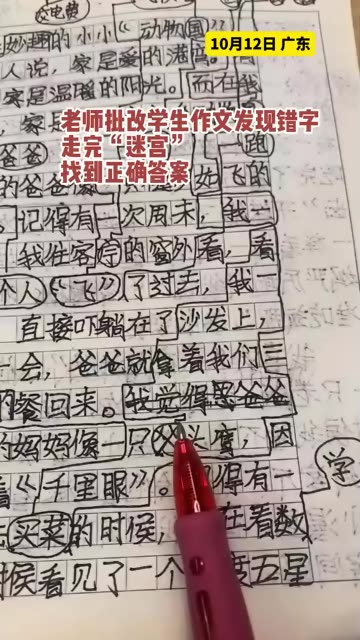 电费
妙趣的小小《动物园》
10月12日 广东
人说，家是爱的港湾。
家是温暖的阳光。而在我
老师批改学生作文发现错字
走完“迷宫”
找到正确答案
一跑
的爸爸像
如飞的
记得有一次周末，我一
我往客停的窗外看，看
个人《飞》了过去，我一
直接吓躺在了沙发上，
一会，爸爸就拿着我们三
的餐回来。我觉得墨爸爸
的妈妈像一只
头鹰，因
着《千里眼》。
得有一
去买菜的时候，
在着数
学
时候看见了一个
度五星